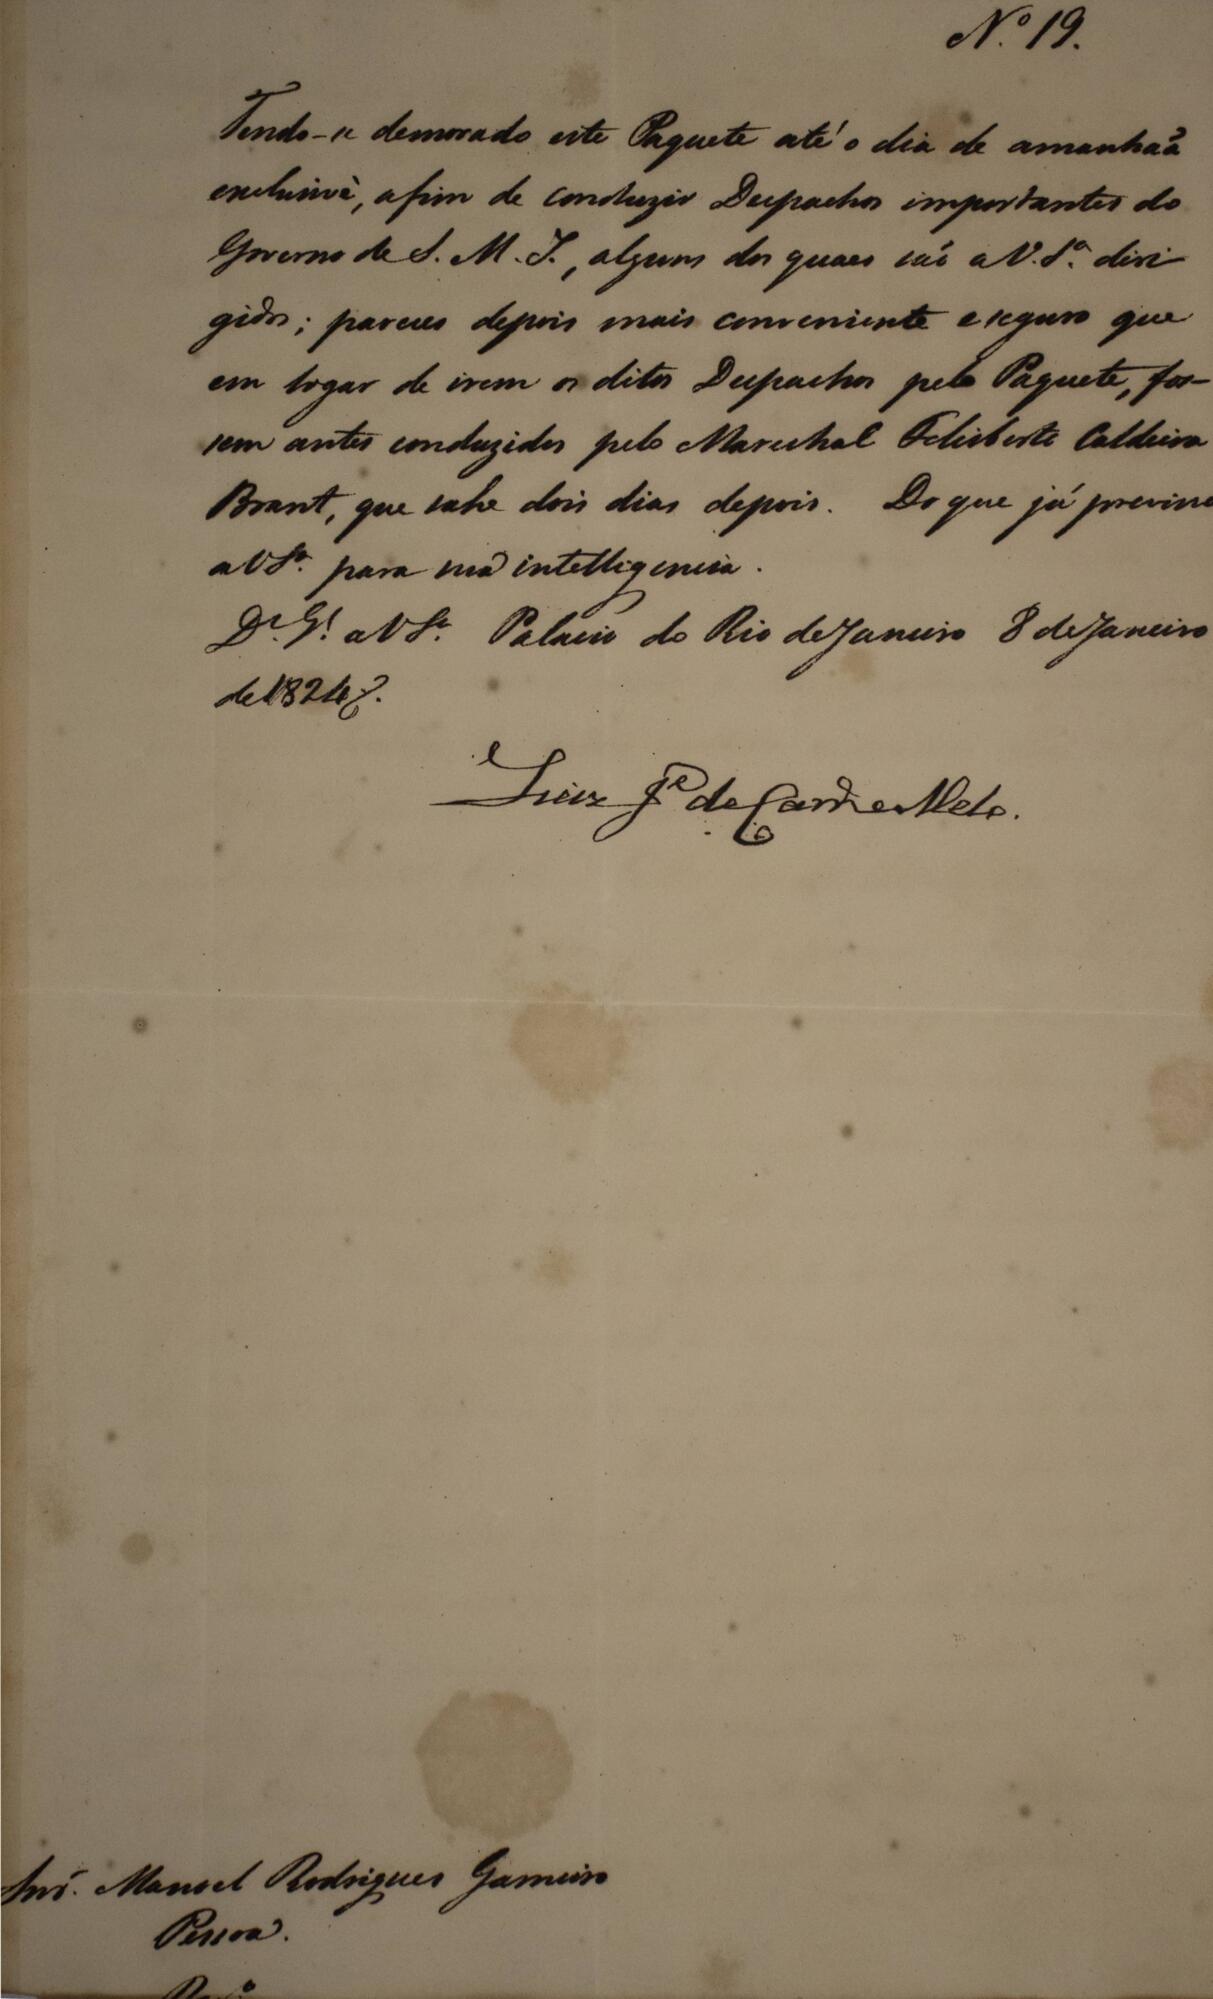 N.º 19.
Tendo-se demorado este Paquete até o dia de amanhaã
exclusivè, afim de conduzir Despachos importantes do
Governo de S. M. I., alguns dos quaes são a V. S.ª diri-
gidos; pareceo depois mais conveniente e seguro que
em logar de irem os ditos Despachos pelo Paquete, fos-
sem antes conduzidos pelo Marechal Felisberto Caldeira
Brant, que sahe dois dias depois. Do que já previno
a V S.ª para sua intelligencia.
D.s G.e a V S.ª Palacio do Rio de Janeiro 8 de Janeiro
de 1824.
Luiz J.e de Carv.º e Mello.
Snr. Manoel Rodrigues Gameiro
Pessoa.